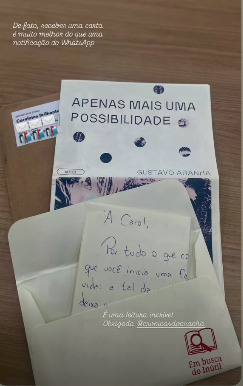 De fato, receber uma carta
é muito melhor do que uma
notificação do WhatsApp
APENAS MAIS UMA
POSSIBILIDADE
GUSTAVO ARANHA
À Carol,
Por tudo o que
que você inicia uma
vida: e tal da
É uma leitura incrível
Obrigada, @cronicasdoaranha
Em busca
do Inútil